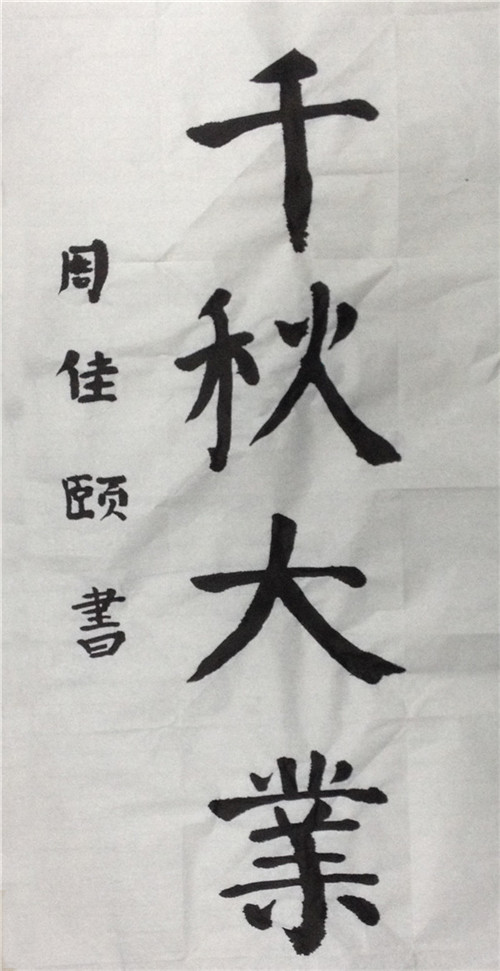 千秋大業
周佳颐書